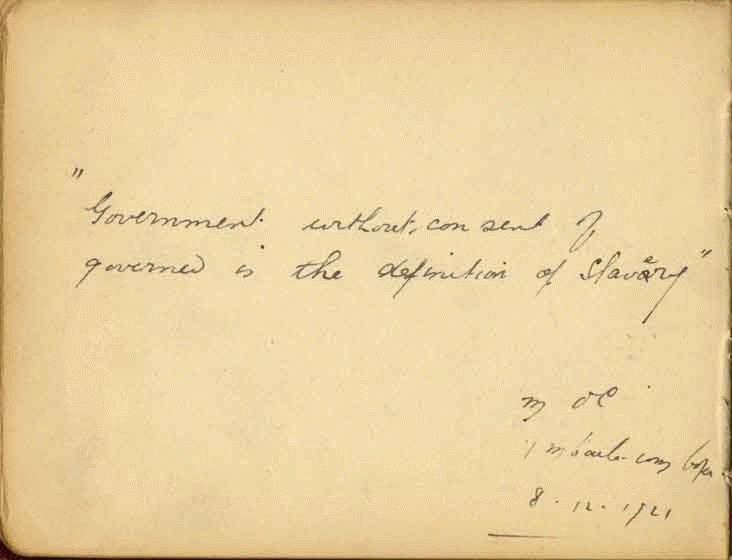 "
Government without, consent of
governed is the definition of Slavery"
m óC
8 . 12 . 1921